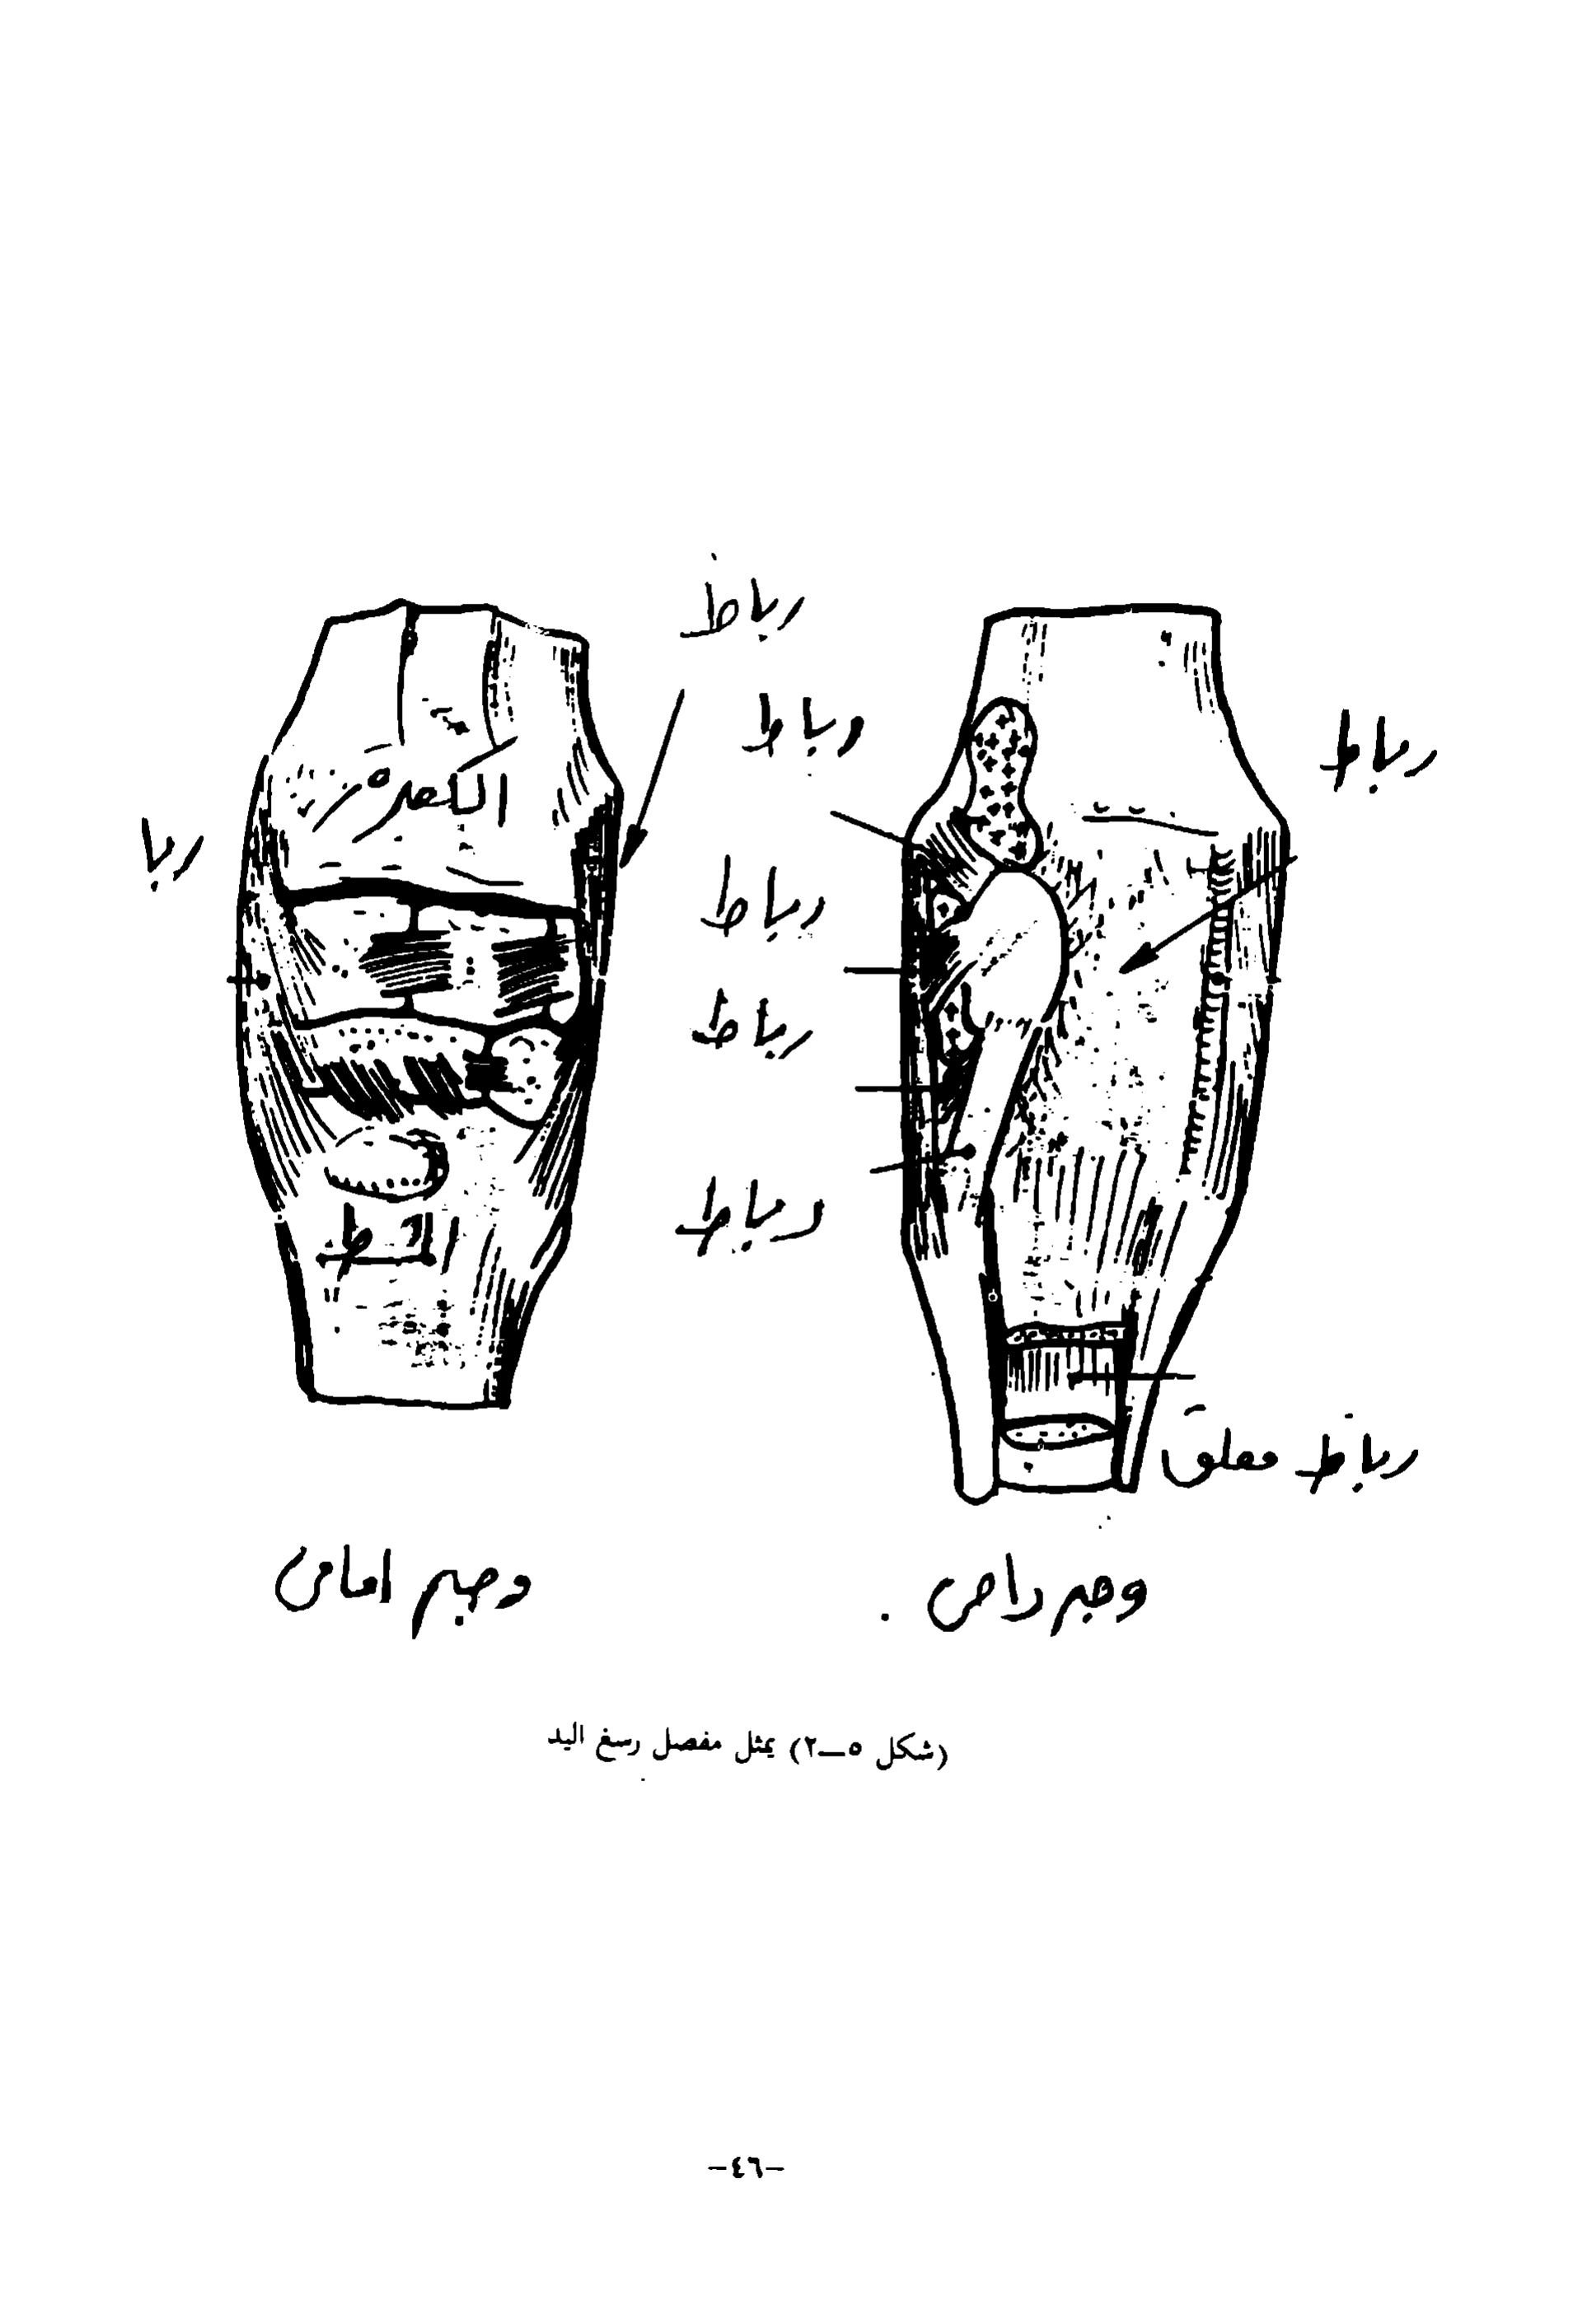 رباط
رباط
رباط
اللقمة
ربا
رباط
رباط
رباط
رباط معلق
وجه امامي
وجه راحي
(شكل ٥—٢) يمثل مفصل رسغ اليد
—٤٦—